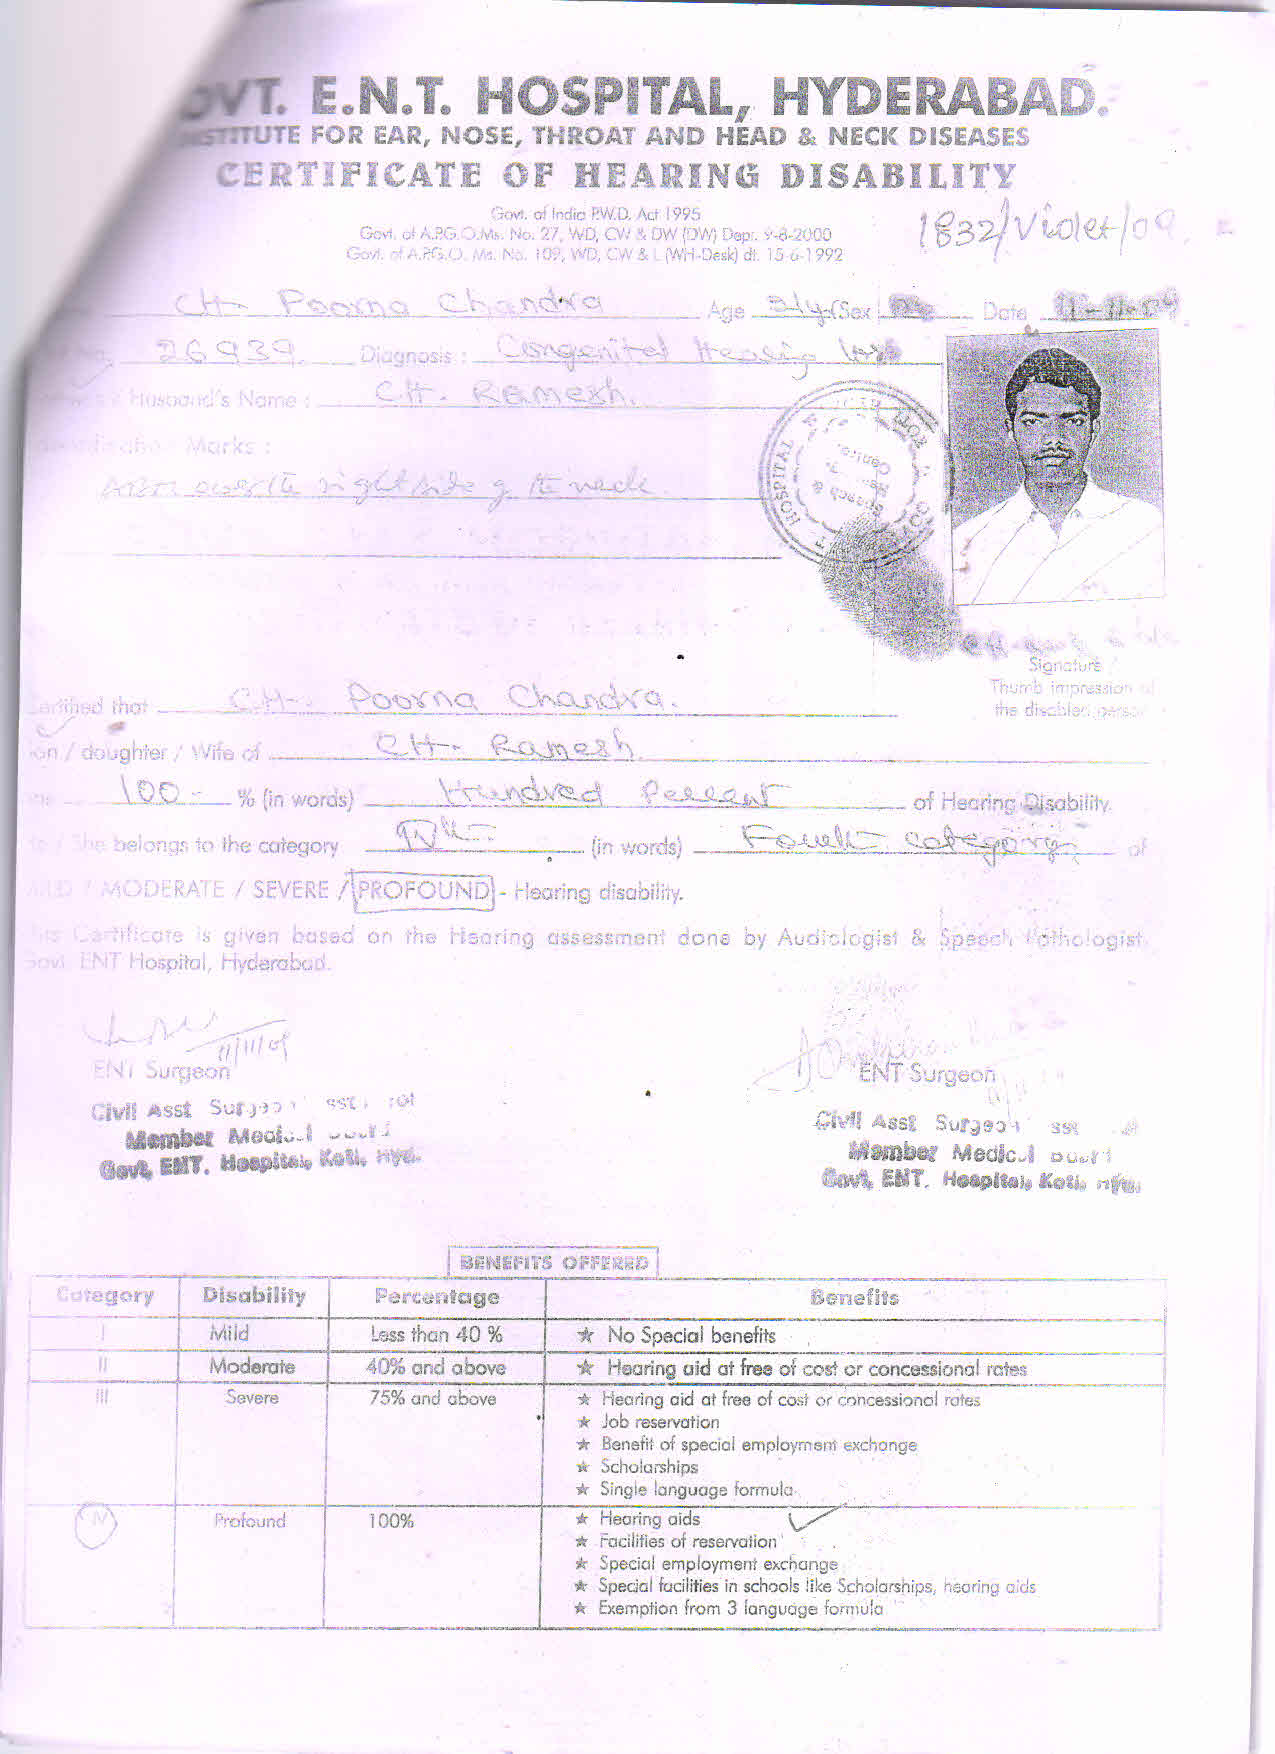 OVT. E.N.T. HOSPITAL, HYDERABAD.
INSTITUTE FOR EAR, NOSE, THROAT AND HEAD & NECK DISEASES
CERTIFICATE OF HEARING DISABILITY
Govt. of India P.W.D. Act 1995
Govt. of A.P.G.O.Ms. No. 27, WD, CW & DW (DW) Dept. 9-8-2000
Govt. of A.P.G.O. Ms. No. 109, WD, CW & L (WH-Desk) dt. 15-6-1992
1832/Violet/09
CH- Poorna Chandra Age 21y Sex Date 11-11-09
26939. Diagnosis : Congenital Hearing loss
Husband's Name : CH. Ramesh.
Identification Marks :
right side of the neck
HOSPITAL
Speech &
Signature /
Thumb impression of
the disabled person
Certified that CH. Poorna Chandra.
son / doughter / Wife of CH. Ramesh
100 - % (in words) Hundred Percent of Hearing Disability.
She belongs to the category IVth (in words) Fourth category of
MILD / MODERATE / SEVERE / PROFOUND - Hearing disability.
This Certificate is given based on the Hearing assessment done by Audiologist & Speech Pathologist
Govt. ENT Hospital, Hyderabad.
11/11/09
ENT Surgeon
Civil Asst Surgeon
Member Medical Board
Govt, ENT. Hospital, Koti, Hyd.
ENT Surgeon
Civil Asst Surgeon
Member Medical Board
Govt, ENT. Hospital, Koti,
BENEFITS OFFERED
Category Disability Percentage Benefits
I Mild Less than 40 % ★ No Special benefits
II Moderate 40% and above ★ Hearing aid at free of cost or concessional rates
III Severe 75% and above ★ Hearing aid at free of cost or concessional rates
★ Job reservation
★ Benefit of special employment exchange
★ Scholarships
★ Single language formula
IV Profound 100% ★ Hearing aids
★ Facilities of reservation
★ Special employment exchange
★ Special facilities in schools like Scholarships, hearing aids
★ Exemption from 3 language formula